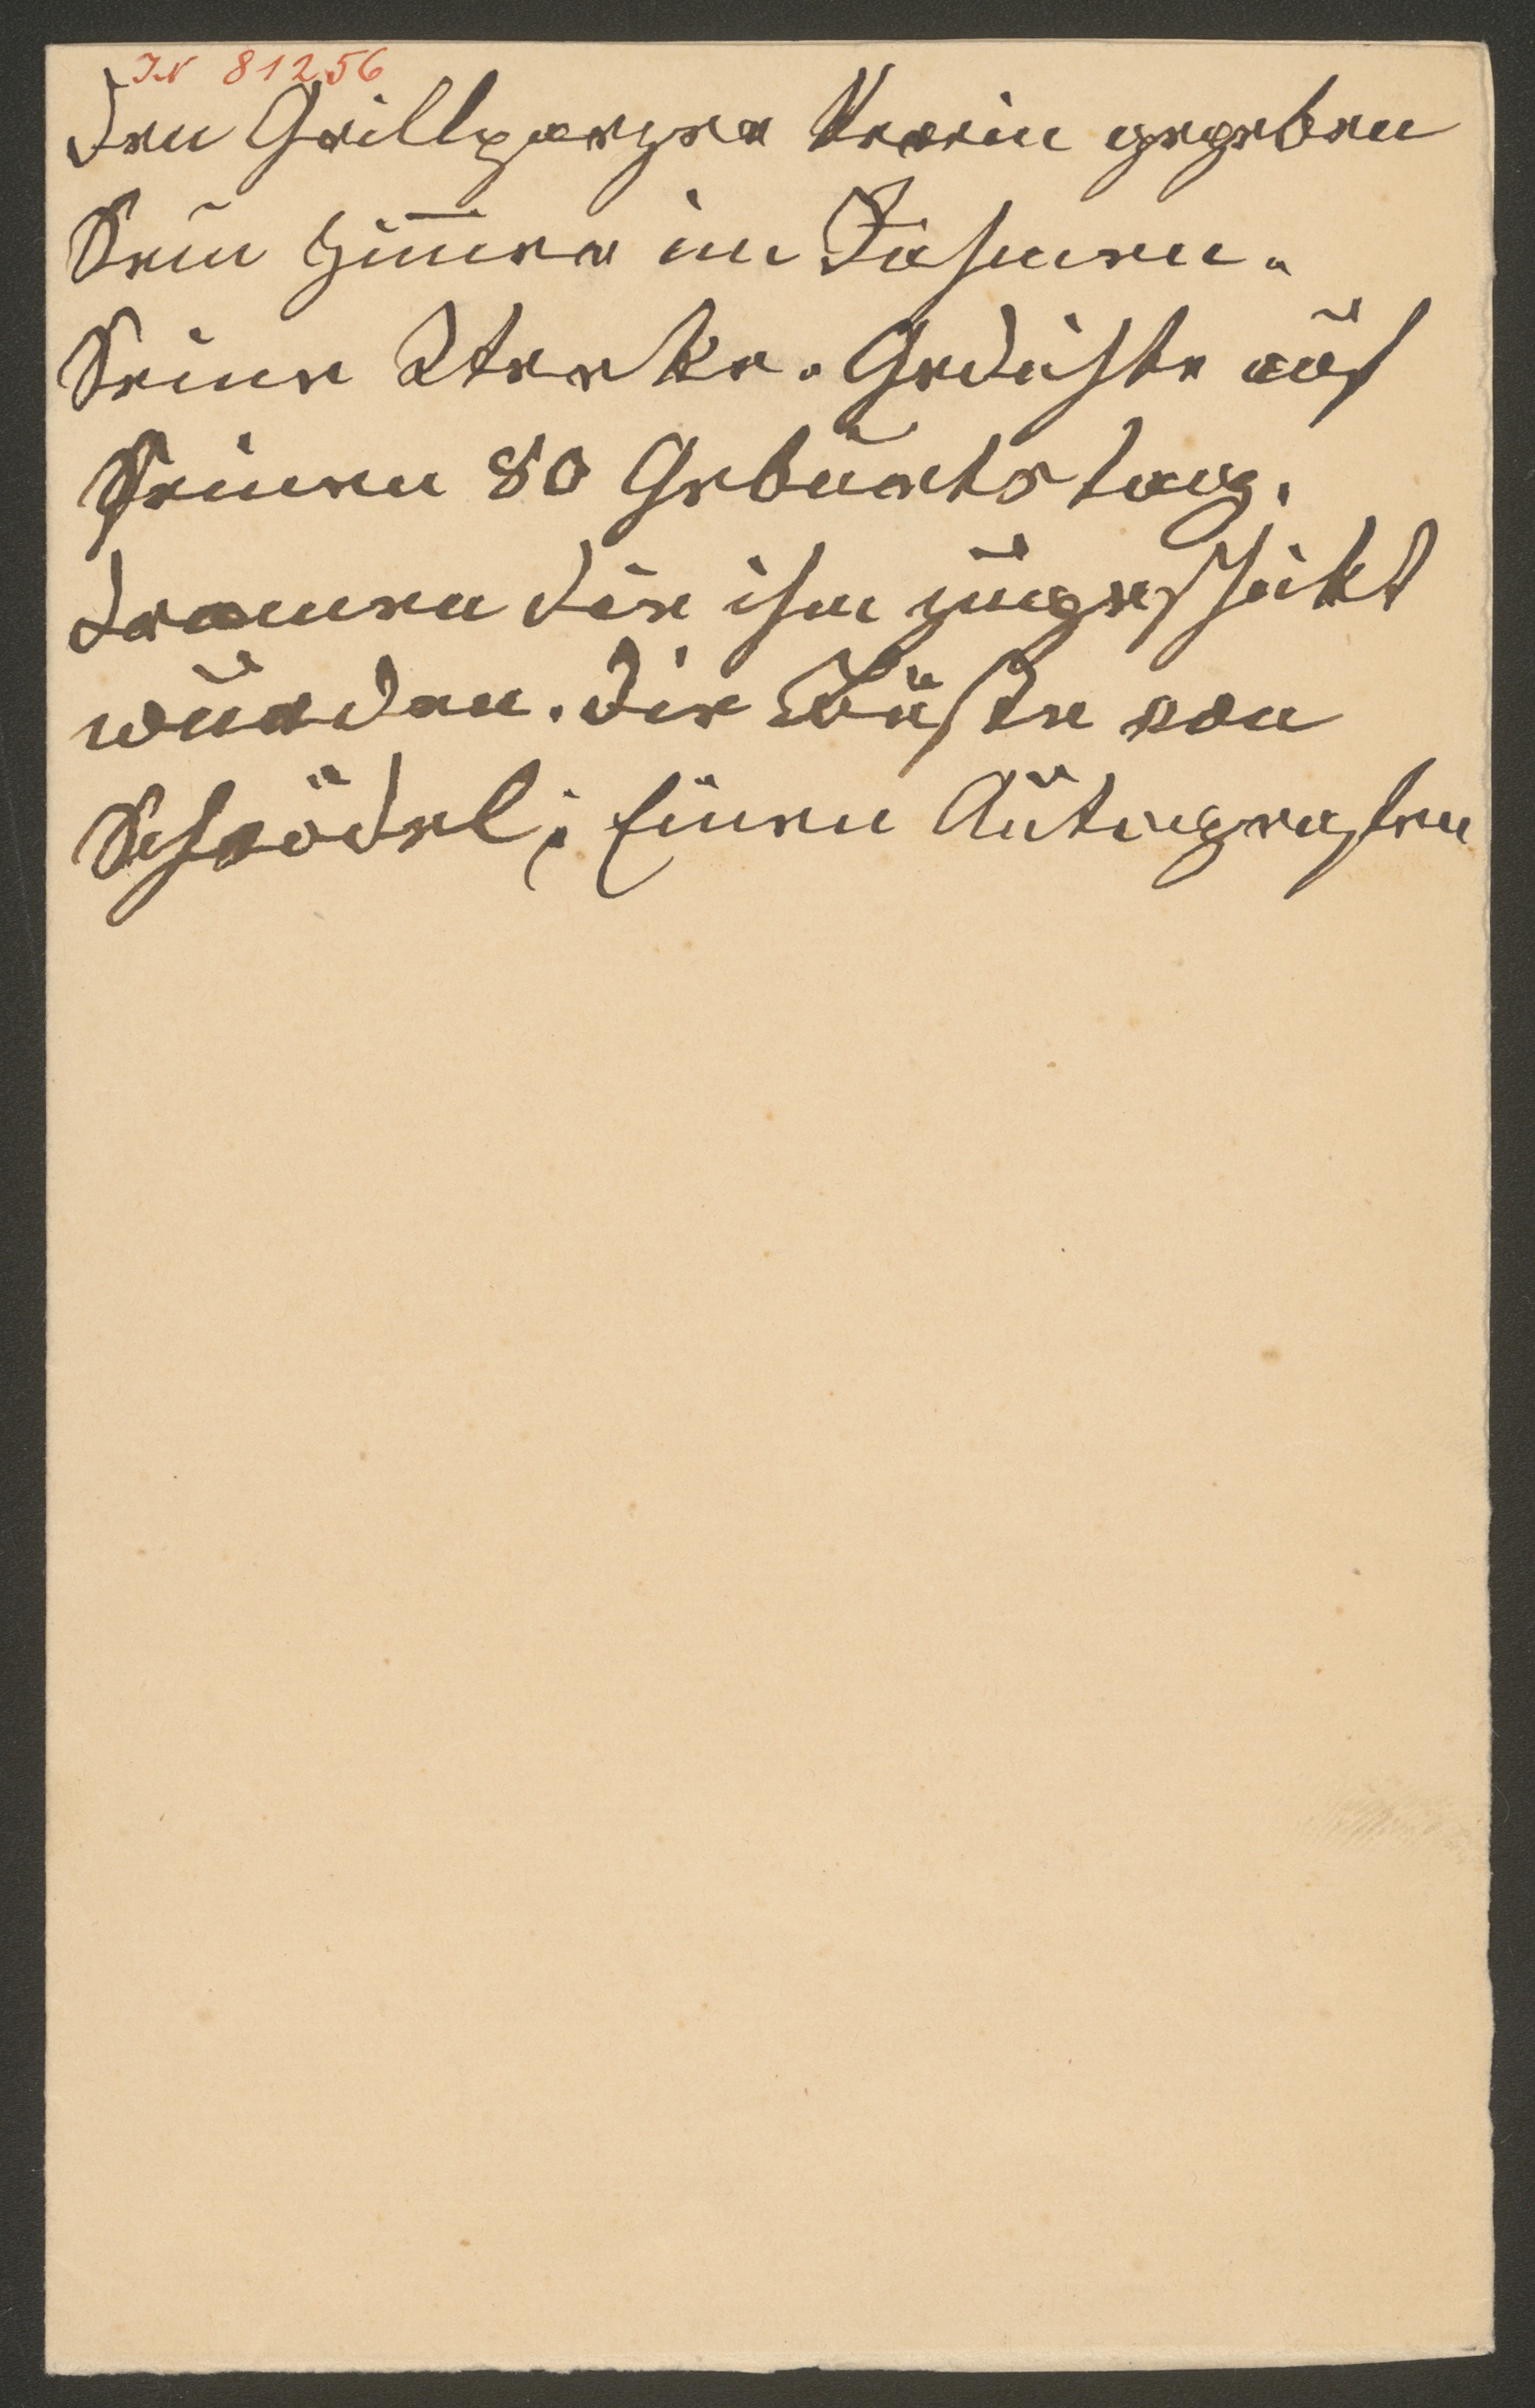 I.N 81256
Den Grillparzer Verein gegeben
Sein Zim̅er im Rahmen.
Seine Werke. Gedichte auf
Seinen 80 Geburtstag.
Dramen die ihm zugeschikt
wurden. die Büste von
Schrödel; Einen Autografen